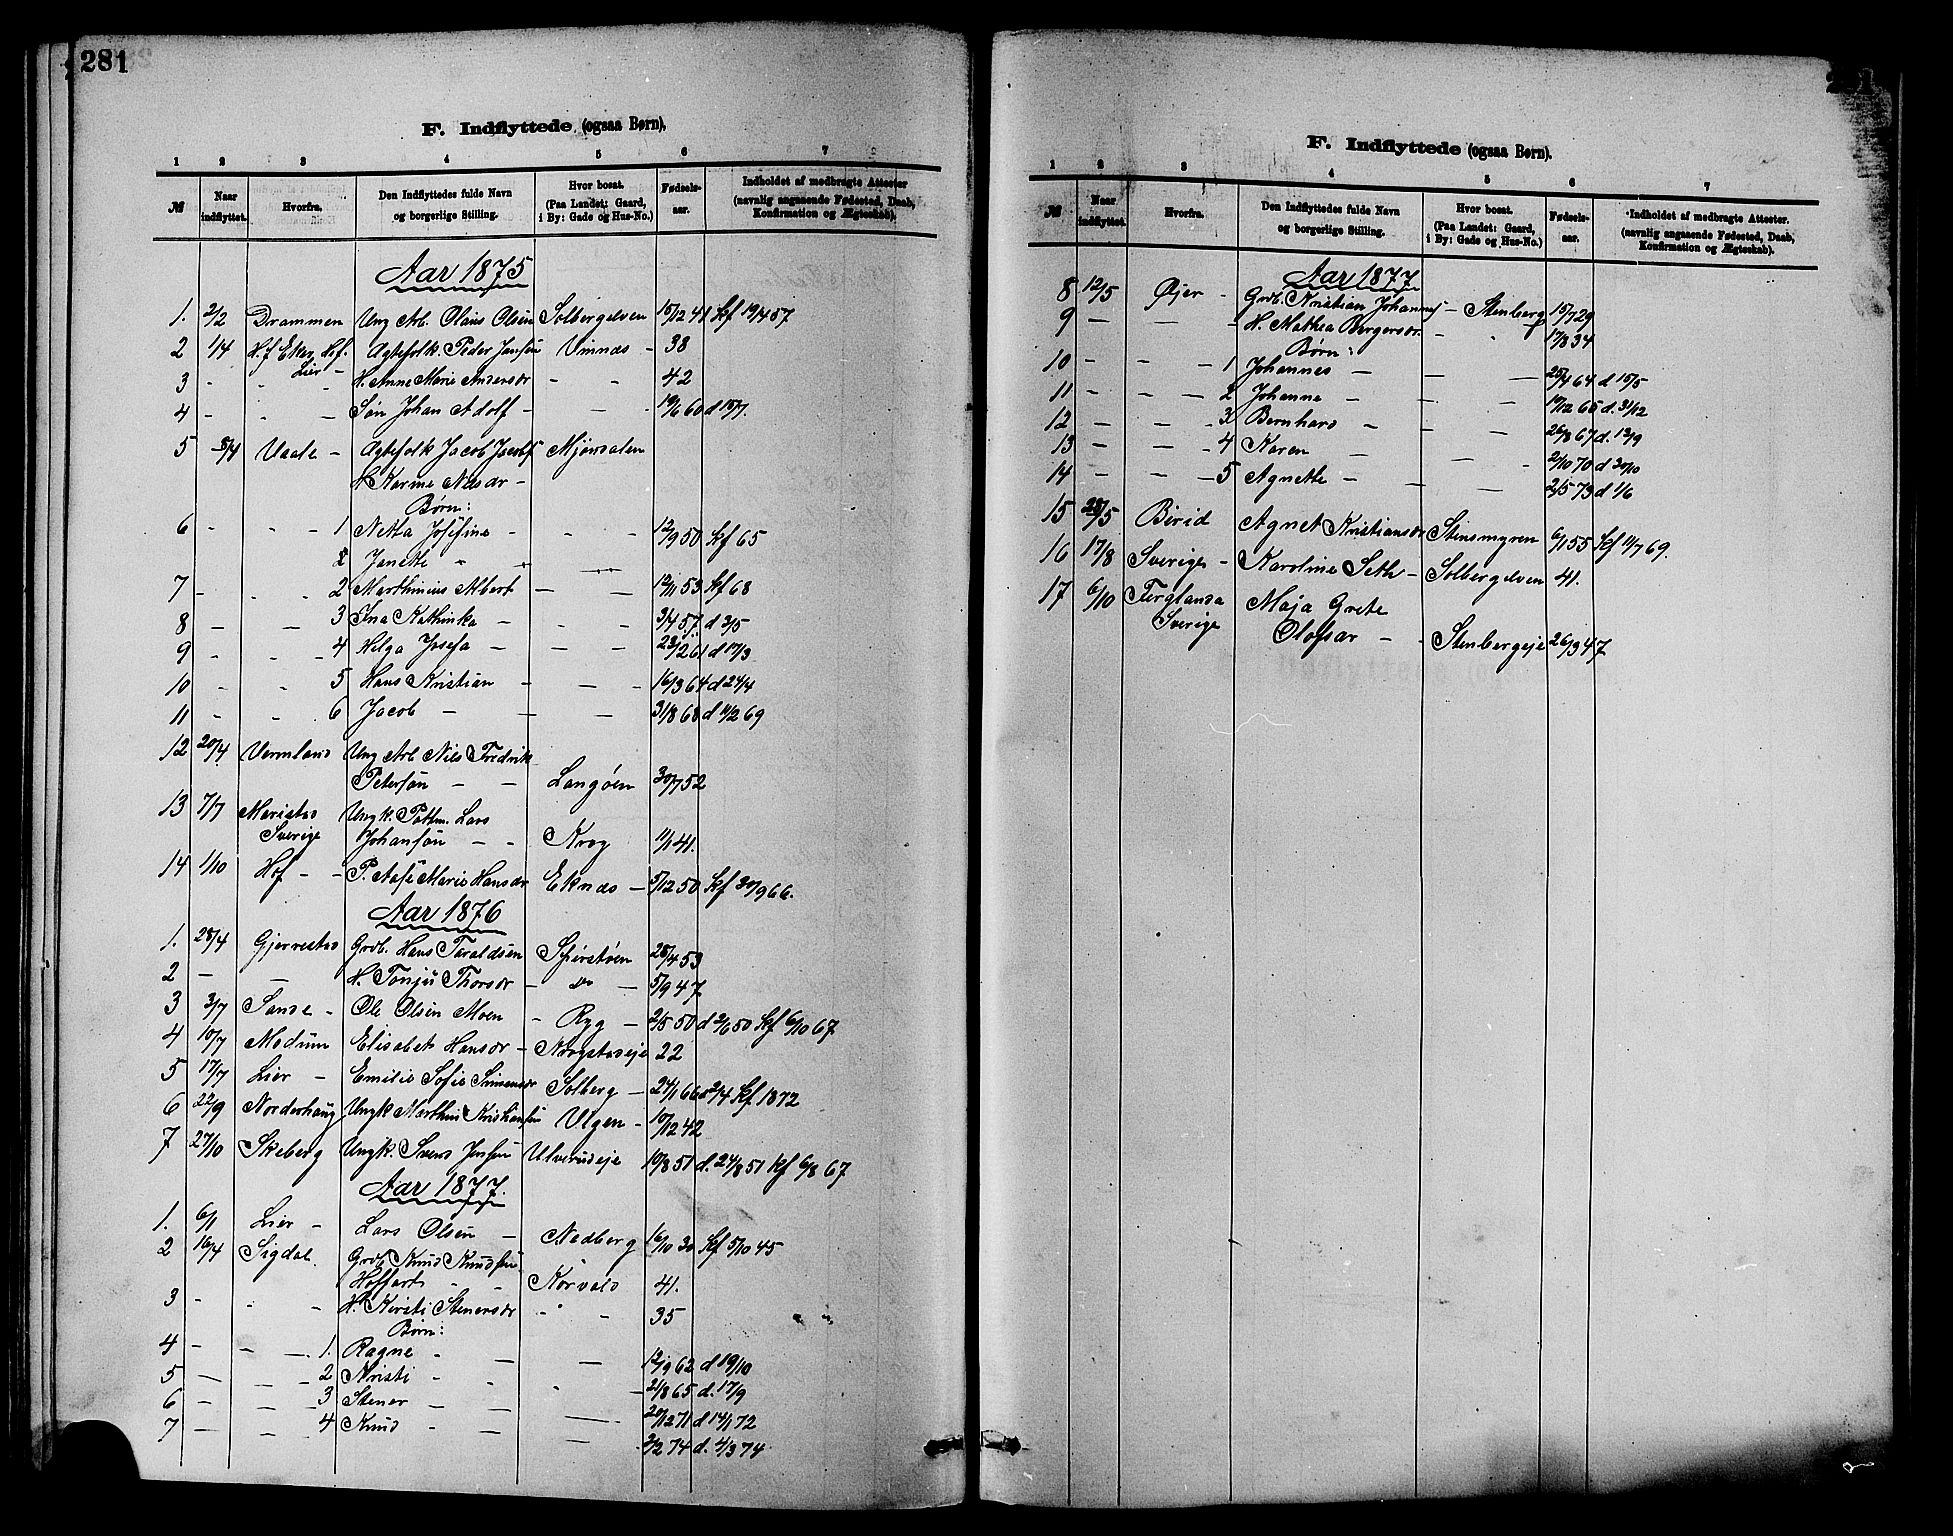 281
F. Indflyttede (ogsaa Børn).
1 2 3 4 5 6 7
№ Naar indflyttet. Hvorfra. Den Indflyttedes fulde Navn og borgerlige Stilling. Hvor bosat. (Paa Landet: Gaard, i By: Gade og Hus-No.) Fødsels-aar. Indholdet af medbragte Attester (navnlig angaaende Fødested, Daab, Konfirmation og Ægteskab).
Aar 1875
1. 2/2 Drammen Ung Arb. Olaus Olsen Solbergelven 15/12 41 kf 19/4 57
2 1/4 N.f Eker, Lier Ægtefolk. Peder Jansen Vinnæs - 38
3 - - - H. Anne Marie Andersdr - - 42
4 - - - Søn Johan Adolf - - 19/6 60 d 15/7.
5 5/4 Vaale - Ægtefolk Jacob Jacobs Mjøndalen
H. Karine Nilsdr -
Børn:
6 - - - 1 Netta Josefine - - - 12/9 50 kf 65
2 Janette - - -
7 - - - 2 Marthinius Albert - - 12/11 53 kf 68
8 - - 3 Ina Kathinka - - 3/4 57. d 3/5
9 - - 4 Helga Josefa - - - 23/12 61 d 17/3
10 - - 5 Hans Kristian - - - 16/3 64 d 24/4
11 - - 6 Jacob - - - 31/8 68 d 11/2 69
12 20/4 Vermland Ung Arb Nils Fredrik
Petersøn - - Langøen 30/7 52
13 7/7 Maristad Ungk. Lars
Sverige Johansøn - - Krog 11/1 41.
14 1/10 Hof - - P. Aase Marie Hansdr Eknæs - 5/12 50 kf 30/9 66.
Aar 1876
1. 28/4 Gjerrestad Grdb. Hans Taraldsen 28/4 53
2 - - H. Tonje Thorsdr - do - 5/9 47
3 3/7 Sande - Ole Olsen Moen - Ryg - 2/5 50 d 2/6 50 kf 6/10 67
4 10/7 Modum Elisabet Hansdr - Krogstadeje 22
5 17/7 Lier - Emilie Sofie Solberg - kf 1872
6 22/9 Norderhaug Ungk Marthin Kristiansen Ulgen - 10/12 42
7 27/10 Skeberg Ungk. Svend Jensen Ulverudeje 10/8 51 d. 24/8 51 kf 6/8 67
Aar 1877.
1. 6/1 Lier - Lars Olsen - Nedberg 16/10 30 kf 5/10 45
2 16/4 Sigdal. Grdb Knud Knudsen
Hoffart - - Korvald 41.
3 - - - H. Kirsti Stenersdr - - 35
Børn:
4 - - - 1. Ragne - - - 12/9 62 d 19/10
5 - - - 2 Kristi - - - 21/8 65 d. 17/9
6 - - - 3 Stener - - - 20/12 71 d 14/1 72
7 - - - 4 Knud - - - 2/2 74 d. 4/3 74
F. Indflyttede (ogsaa Børn).
1 2 3 4 5 6 7
№ Naar indflyttet. Hvorfra. Den Indflyttedes fulde Navn og borgerlige Stilling. Hvor bosat. (Paa Landet: Gaard, i By: Gade og Hus-No.) Fødsels-aar. Indholdet af medbragte Attester. (navnlig angaaende Fødested, Daab, Konfirmation og Ægteskab).
Aar 1877
8 12/5 Øjer - Grdb. Kristian Johannes - Stenberg 15/7 29
9 - - - H. Mathea Børgersdr. - 17/8 34
Børn:
10 - - 1 Johannes - - - 25/4 64 d 15/5
11 - - - 2 Johanne - - - 19/12 65 d. 31/12
12 - - - 3 Bernhard - - - 26/8 67 d. 13/9
13 - - - 4 Karen - - - 2/10 70 d 30/10
14 - - - 5 Agnethe - - - 2/5 73 d 1/6
15 28/5 Birid Agnet Kristiansdr Stensmyren 6/1 55 kf 11/7 69.
16 17/8 Sverige - Karoline Seth - Solbergelven 41.
17 6/10 Ferglanda Maja Grete
Sverige Olofsdr - - Stenbergeje 26/3 47